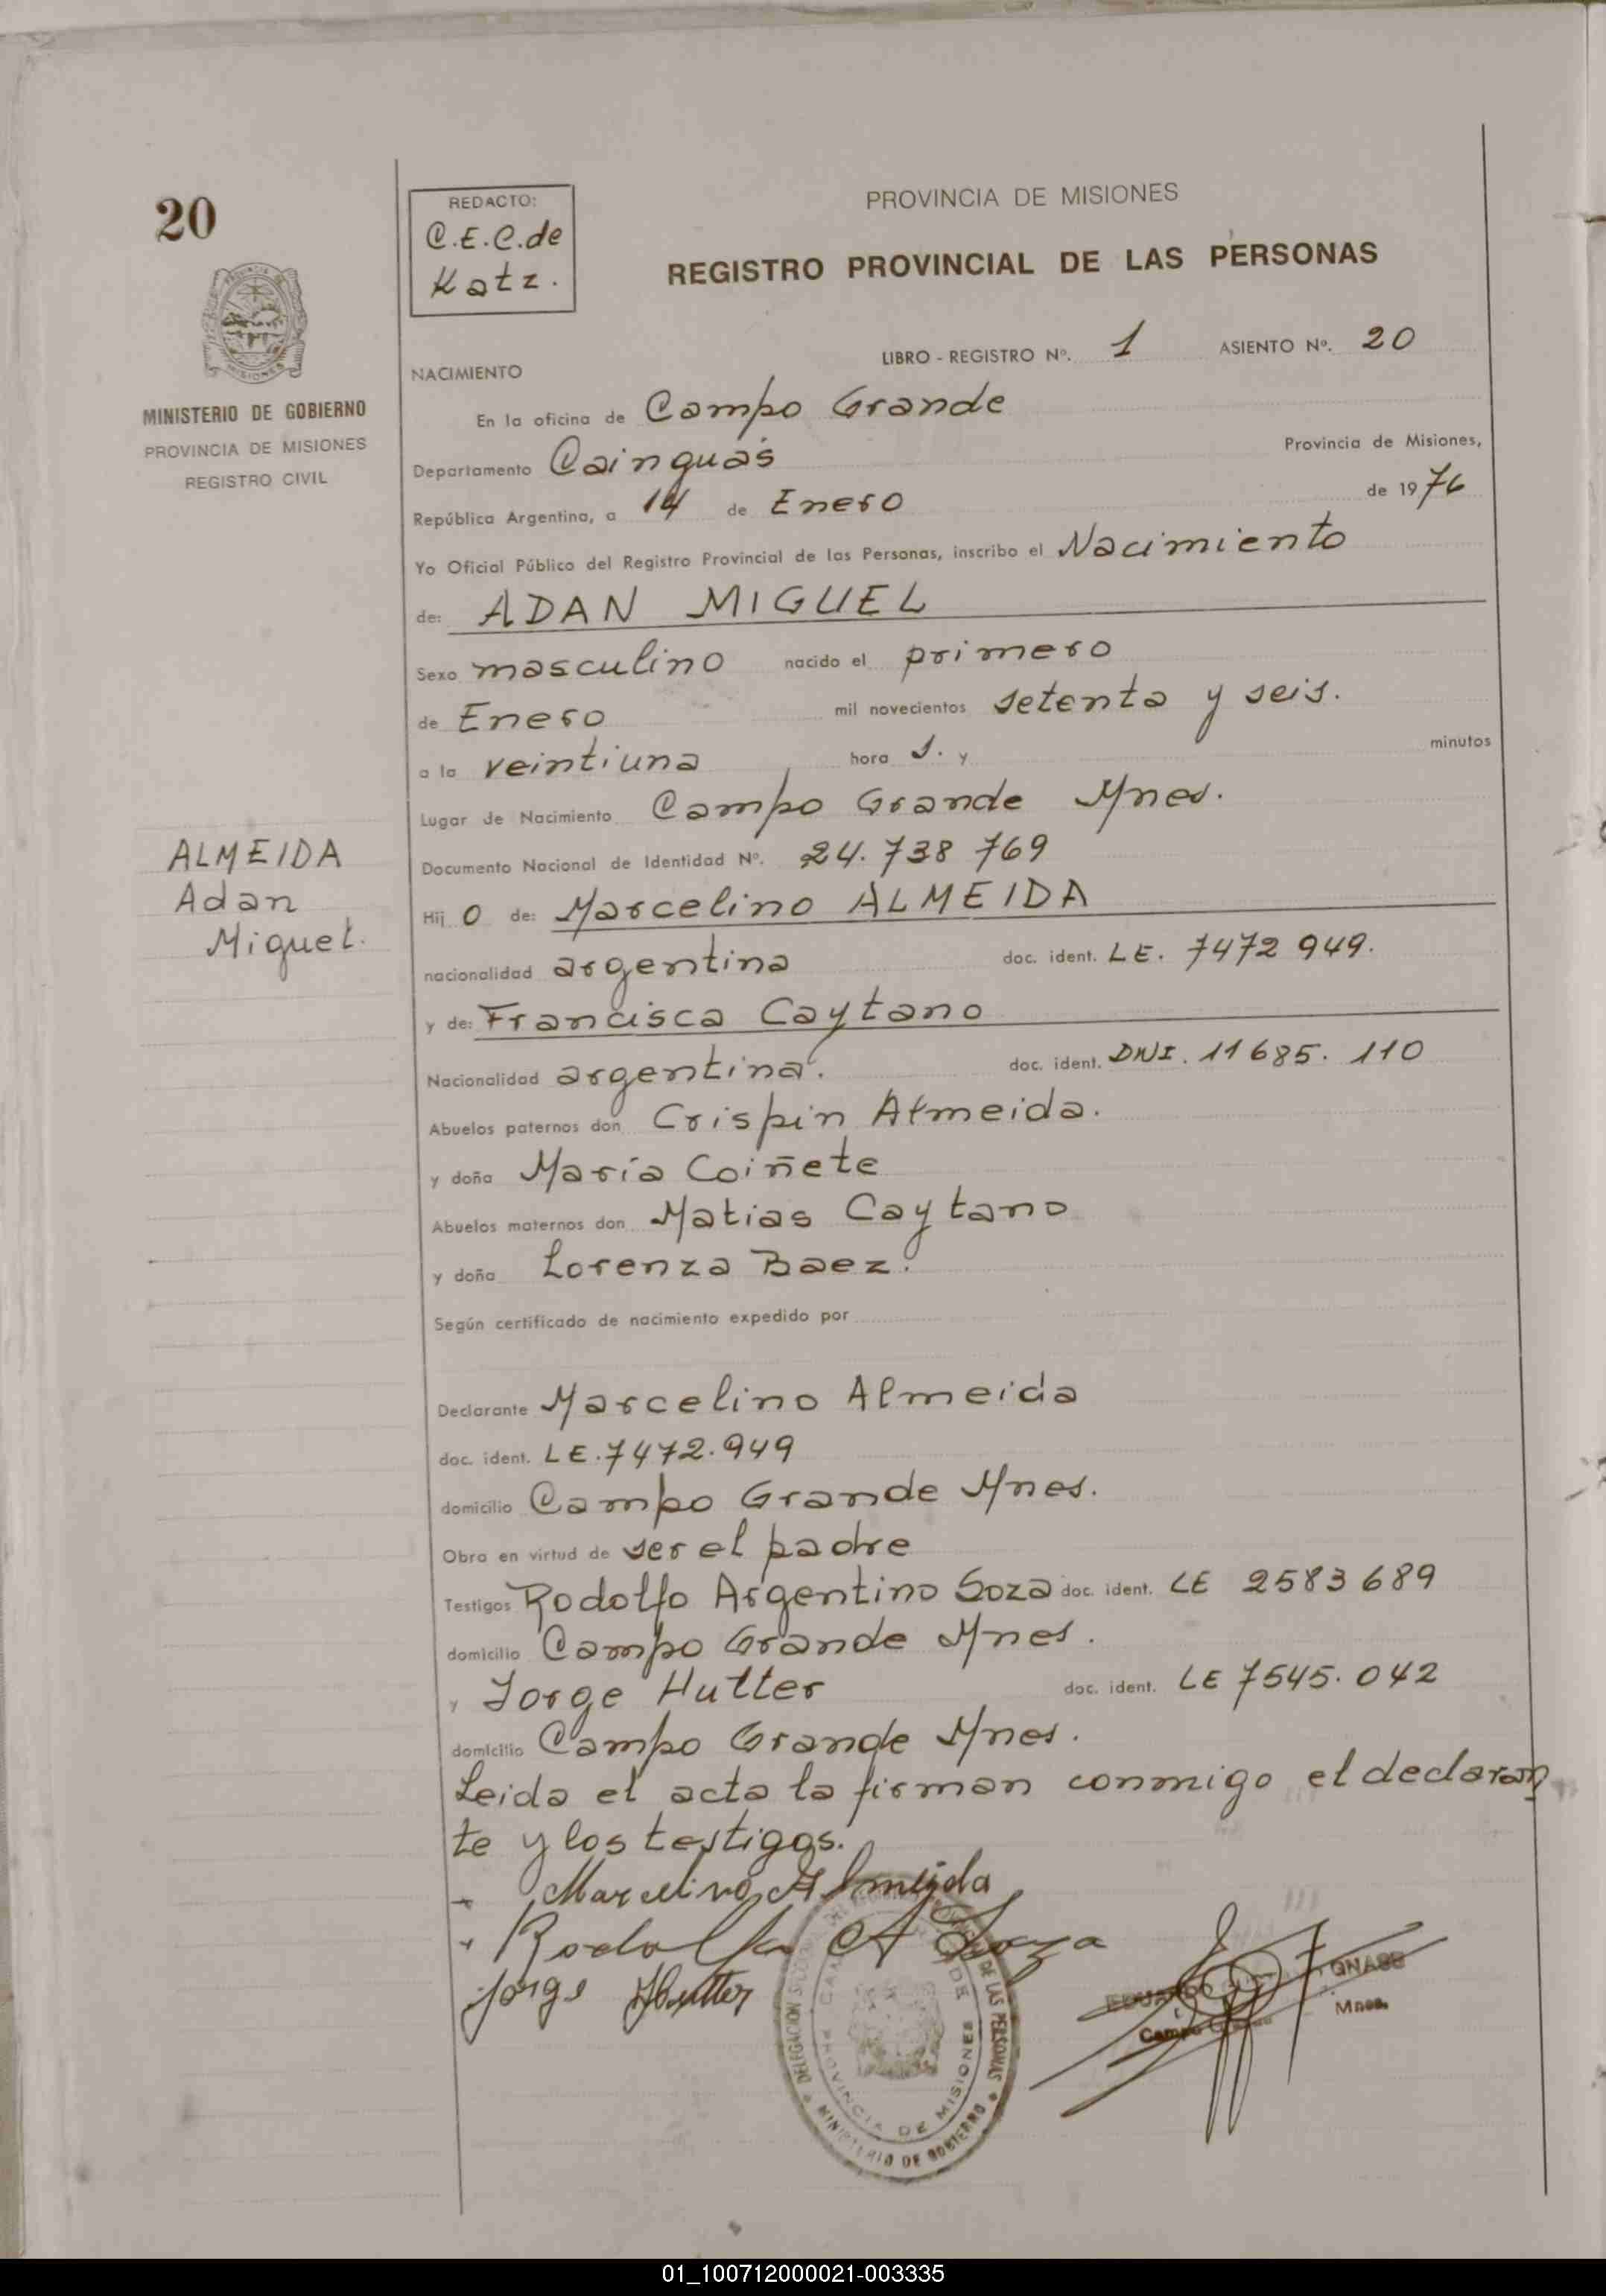 20
MINISTERIO DE GOBIERNO
PROVINCIA DE MISIONES
REGISTRO CIVIL
ALMEIDA
Adan
Miguel.
REDACTO:
C.E.C.de
Katz.
PROVINCIA DE MISIONES
REGISTRO PROVINCIAL DE LAS PERSONAS
LIBRO - REGISTRO Nº. 1 ASIENTO Nº. 20
NACIMIENTO
En la oficina de Campo Grande
Departamento Cainguás Provincia de Misiones,
República Argentina, a 14 de Enero de 1976
Yo Oficial Público del Registro Provincial de las Personas, inscribo el Nacimiento
de: ADAN MIGUEL
Sexo masculino nacido el primero
de Enero mil novecientos setenta y seis.
a la veintiuna hora s. y minutos
Lugar de Nacimiento Campo Grande Mnes.
Documento Nacional de Identidad Nº. 24.738 769
Hij o de: Marcelino ALMEIDA
nacionalidad argentina doc. ident. LE. 7472 949.
y de: Francisca Caytano
Nacionalidad argentina. doc. ident. DNI. 11685. 110
Abuelos paternos don Crispin Almeida.
y doña María Coiñete
Abuelos maternos don Matias Caytano
y doña Lorenza Baez.
Según certificado de nacimiento expedido por
Declarante Marcelino Almeida
doc. ident. LE.7472.949
domicilio Campo Grande Mnes.
Obra en virtud de ser el padre
Testigos Rodolfo Argentino Soza doc. ident. LE 2583689
domicilio Campo Grande Mnes.
y Jorge Hutter doc. ident. LE 7545.042
domicilio Campo Grande Mnes.
Leida el acta la firman conmigo el declaran
te y los testigos.
Marcelino Almeida
Rodolfo A Soza
Jorge Hutter
DELEGACION DE LAS PERSONAS
PROVINCIA DE MISIONES
MINISTERIO DE GOBIERNO
EDUARDO
Campo Mnes.
01_100712000021-003335